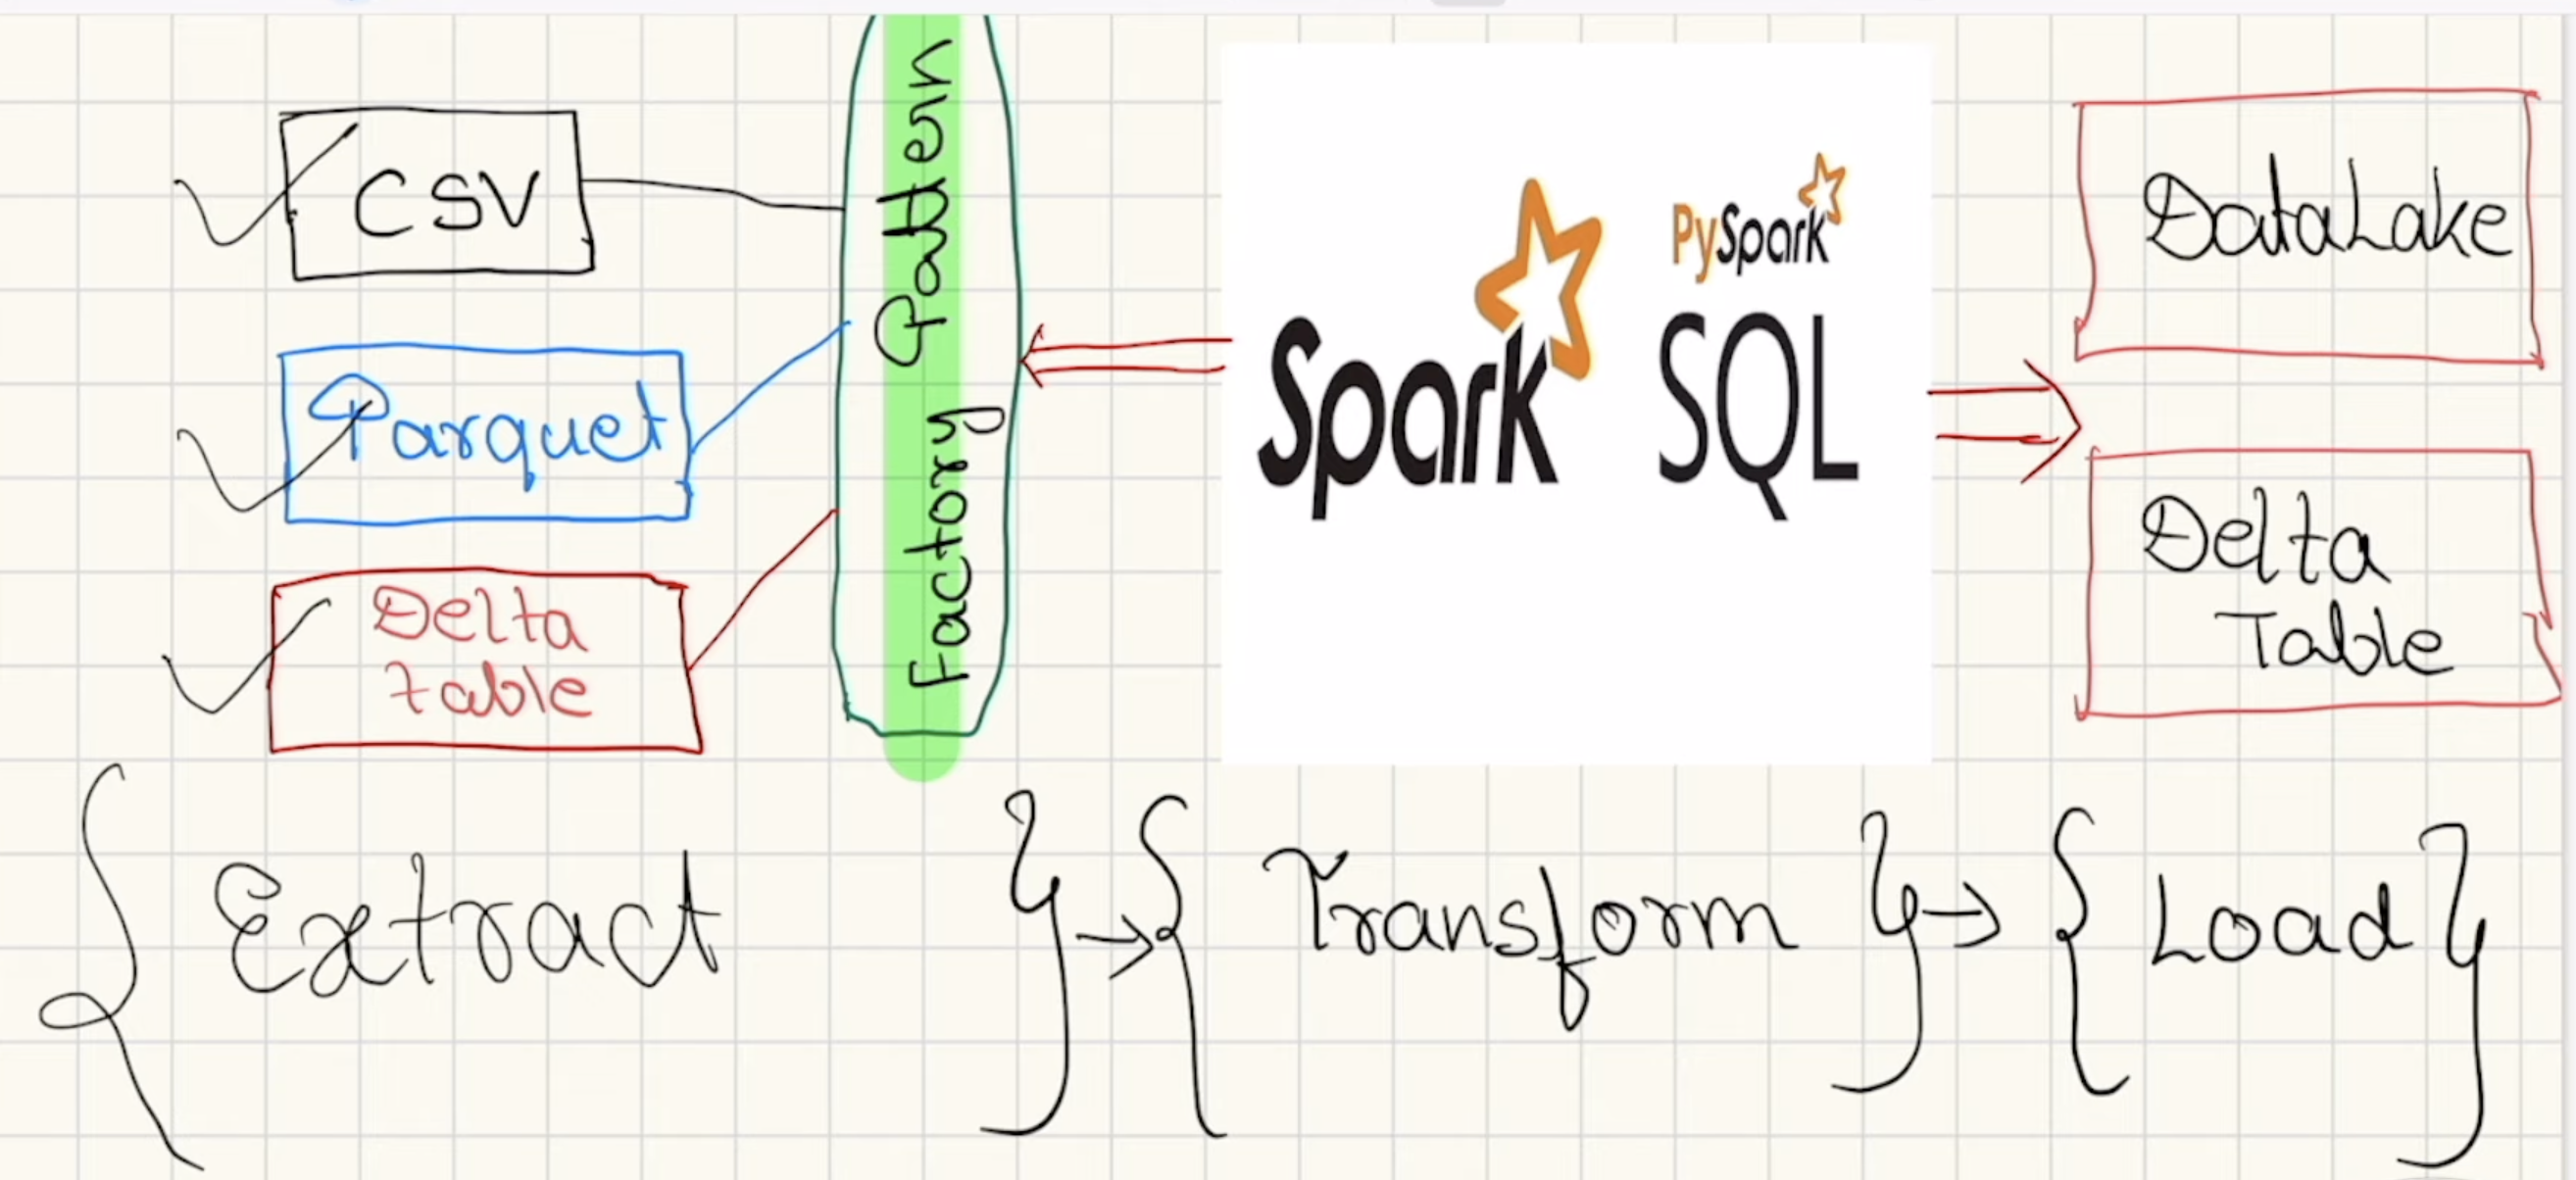 CSV
Parquet
Delta
table
Factory Pattern
Spark
PySpark
SQL
DataLake
Delta
Table
{ Extract } → { Transform } → { Load }